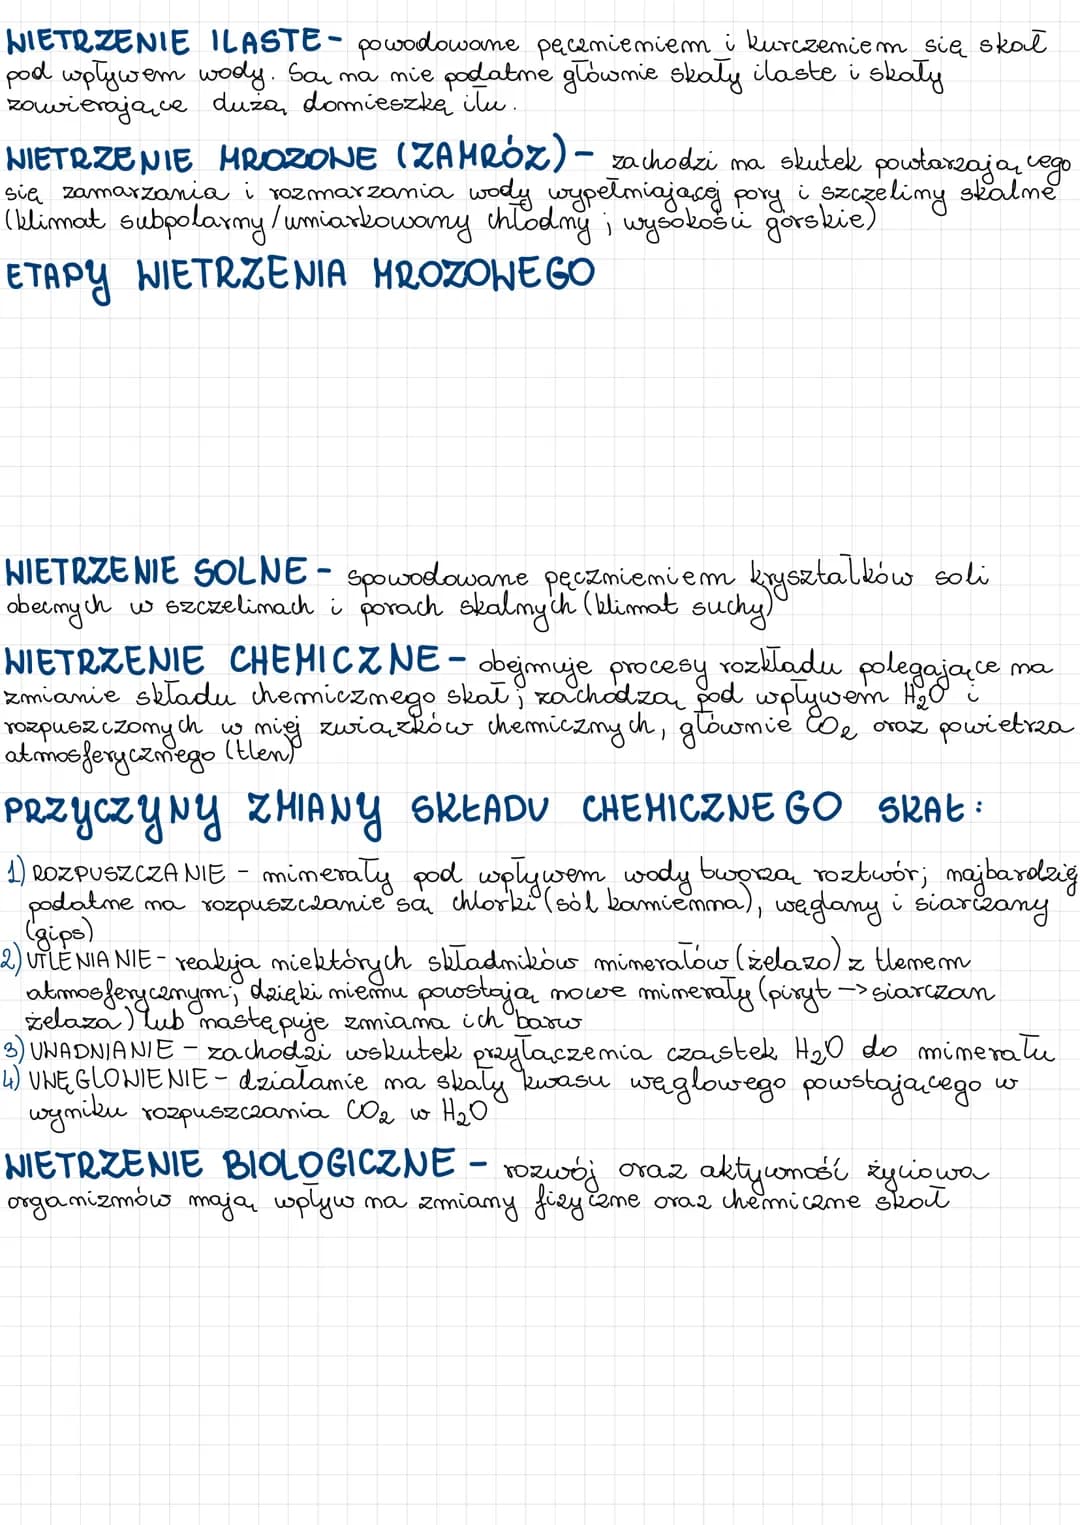 WIETRZENIE ILASTE - powodowane pęcznieniem i kurczeniem się skał
pod wpływem wody. Są na nie podatne głównie skały ilaste i skały
zawierające dużą domieszkę iłu.
WIETRZENIE MROZOWE (ZAMRÓZ) - zachodzi na skutek powtarzającego
się zamarzania i rozmarzania wody wypełniającej pory i szczeliny skalne
(klimat subpolarny/umiarkowany chłodny; wysokości górskie)
ETAPY WIETRZENIA MROZOWEGO
WIETRZENIE SOLNE - spowodowane pęcznieniem kryształków soli
obecnych w szczelinach i porach skalnych (klimat suchy)
WIETRZENIE CHEMICZNE - obejmuje procesy rozkładu polegające na
zmianie składu chemicznego skał; zachodzą pod wpływem H₂O i
rozpuszczonych w niej związków chemicznych, głównie CO₂ oraz powietrza
atmosferycznego (tlen)
PRZYCZYNY ZMIANY SKŁADU CHEMICZNEGO SKAŁ:
1) ROZPUSZCZANIE - minerały pod wpływem wody tworzą roztwór; najbardziej
podatne na rozpuszczanie są chlorki (sól kamienna), węglany i siarczany
(gips)
2) UTLENIANIE - reakcja niektórych składników minerałów (żelazo) z tlenem
atmosferycznym; dzięki niemu powstają nowe minerały (piryt -> siarczan
żelaza) lub następuje zmiana ich barw
3) UWADNIANIE - zachodzi wskutek przyłączenia cząstek H₂O do minerału
4) UWĘGLOWIENIE - działanie na skały kwasu węglowego powstającego w
wyniku rozpuszczania CO₂ w H₂O
WIETRZENIE BIOLOGICZNE - rozwój oraz aktywność życiowa
organizmów mają wpływ na zmiany fizyczne oraz chemiczne skał